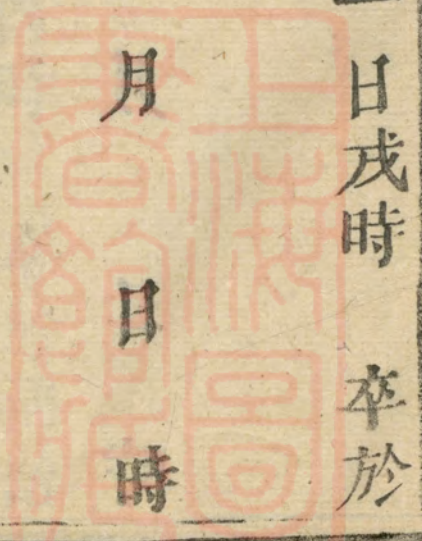 日戌時 卒於
月 日 時
上海圖
書館藏